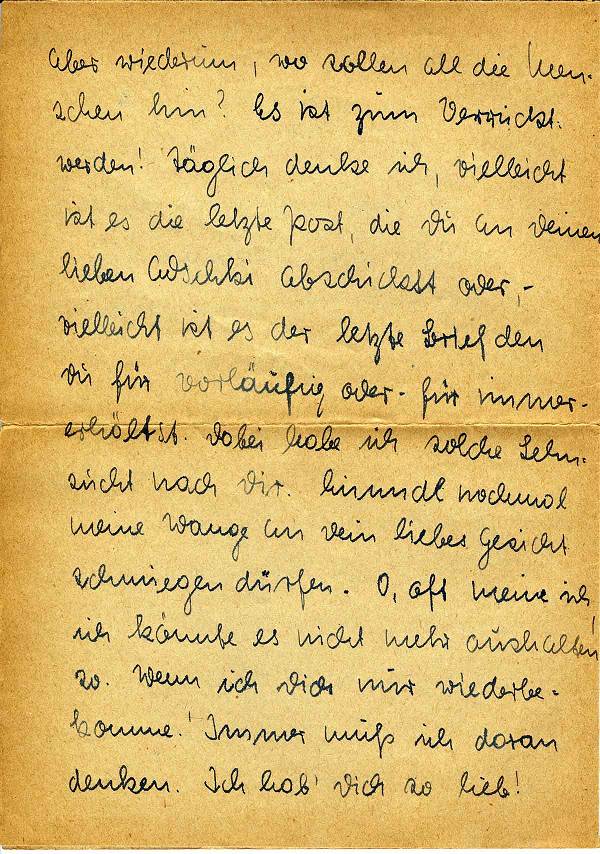 Aber wiederum, wo sollen all die Men-
schen hin? Es ist zum Verrückt.
werden! Täglich denke ich, vielleicht
ist es die letzte Post, die du an Deinen
lieben abschickst oder,-
vielleicht ist es der letzte Brief den
du für vorläufig oder- für immer-
erhältst. Dabei habe ich solche Sehn-
sucht nach dir. nochmal
meine Wange an Dein liebes Gesicht
schmiegen dürfen. O, oft meine ich,
ich könnte es nicht mehr aushalten
so. Wenn ich dich nur wiederbe-
komme! Immer muß ich daran
denken. Ich hab' dich so lieb!